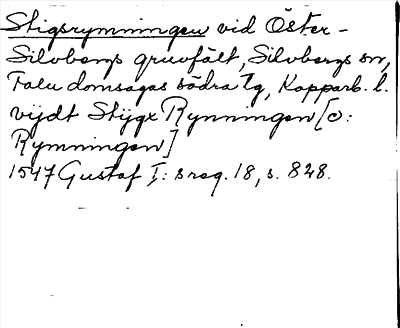 Stigsrymningen vid Öster-
Silvbergs gruvfält, Silvbergs sn,
Falu domsagas södra tg, Kopparb. l.
vijdt Stijgx Rynningen [ɔ:
Rymningen]
1547 Gustaf I: s reg. 18, s. 828.